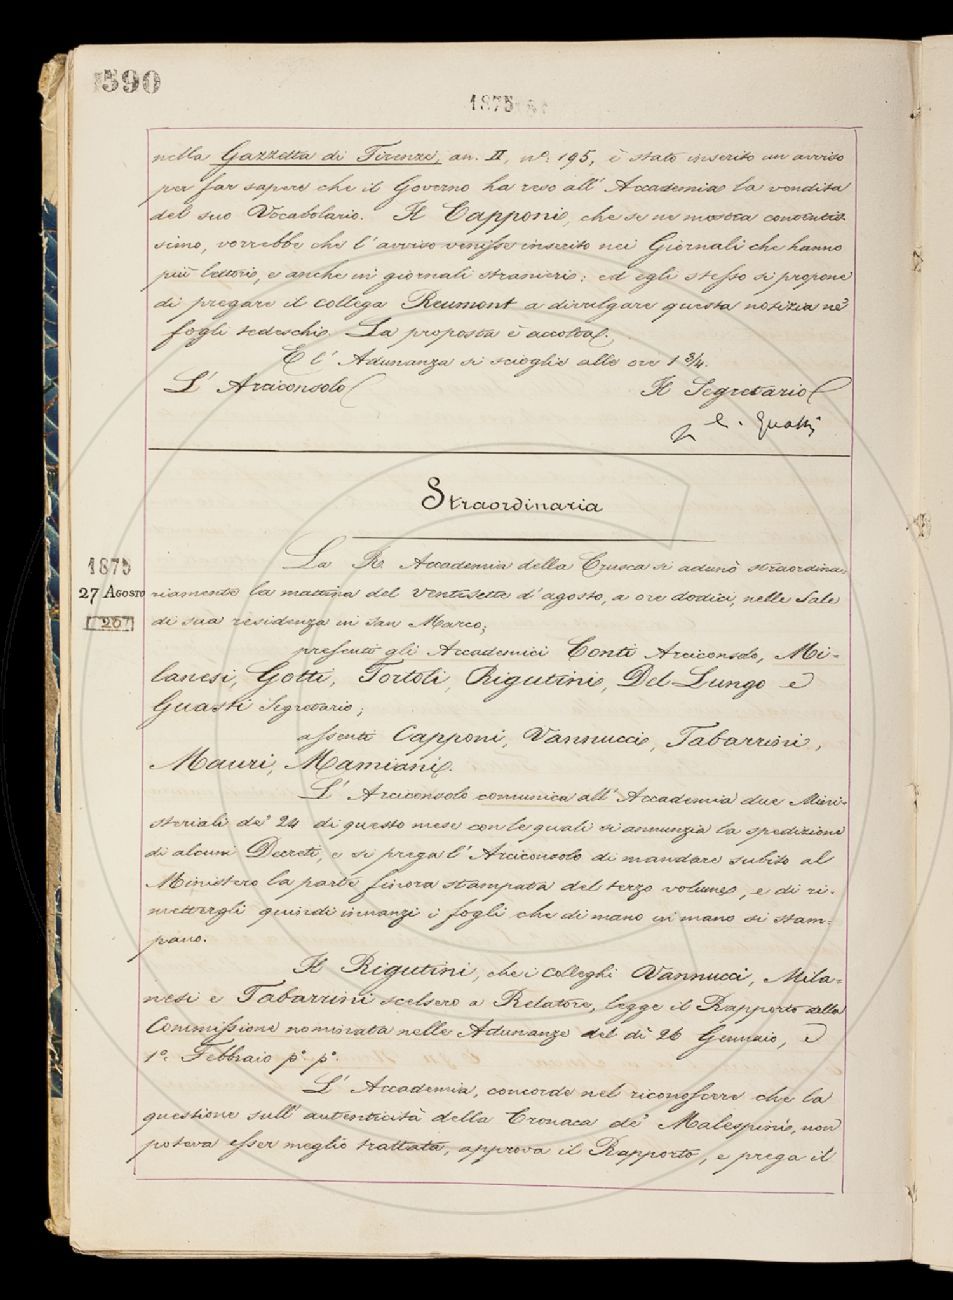 590
1875
nella Gazzetta di Firenze, an. II, n.º 195, è stato inserito un avviso
per far sapere che il Governo ha reso all' Accademia la vendita
del suo Vocabolario. Il Capponi, che se ne mostra contentis-
simo, vorrebbe che l'avviso venisse inserito nei Giornali che hanno
più lettori, e anche in giornali stranieri: ed egli stesso si propone
di pregare il collega Reumont a divulgare questa notizia ne'
fogli tedeschi. La proposta è accolta.
E l' Adunanza si scioglie alle ore 1 3/4.
L' Arciconsolo
Il Segretario
C. Guasti
Straordinaria
1875
27 Agosto
La R. Accademia della Crusca si adunò straordina-
riamente la mattina del ventisette d'agosto, a ore dodici, nelle Sale
di sua residenza in San Marco;
presenti gli Accademici Conti Arciconsolo, Mi-
lanesi, Gotti, Tortoli, Rigutini, Del Lungo e
Guasti Segretario;
assenti Capponi, Vannucci, Tabarrini,
Mauri, Mamiani.
L' Arciconsolo comunica all' Accademia due Mini-
steriali de' 24 di questo mese con le quali si annunzia la spedizione
di alcuni Decreti, e si prega l' Arciconsolo di mandare subito al
Ministero la parte finora stampata del terzo volume, e di ri-
mettergli quindi innanzi i fogli che di mano in mano si stam-
pano.
Il Rigutini, che i Colleghi Vannucci, Mila-
nesi e Tabarrini scelsero a Relatore, legge il Rapporto della
Commissione nominata nelle Adunanze del dì 26 Gennaio, e
1º. Febbraio pº. pº.
L' Accademia, concorde nel riconoscere che la
questione sull' autenticità della Cronaca de' Malespini, non
poteva esser meglio trattata, approva il Rapporto, e prega il